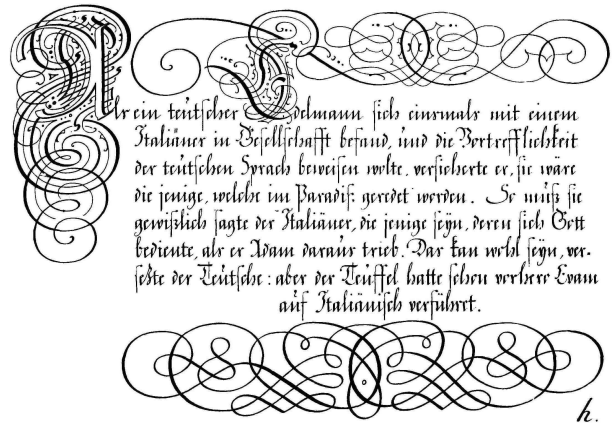 Als ein teütscher Edelmann sich einsmals mit einem
Italiäner in Gesellschafft befand, und die Vortrefflichkeit
der teütschen Sprach beweisen wolte, versicherte er, sie wäre
die jenige, welche im Paradiß geredet worden. So muß sie
gewißlich sagte der Italiäner, die jenige seyn, deren sich Gott
bediente, als er Adam daraus trieb. Das kan wohl seyn, ver-
setzte der Teütsche: aber der Teüffel hatte schon vorhero Evam
auf Italiänisch verführt.
h.